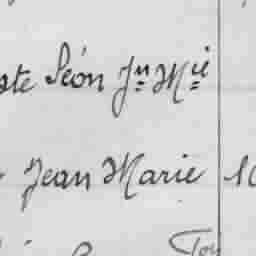 ste Léon Jn Mie
Jean Marie 10
Tou